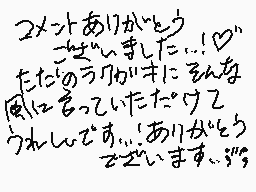 コメントありがとう
ございました…!♡
ただのラクガキにそんな
風に言っていただけて
うれしいです…!ありがとう
ございます…